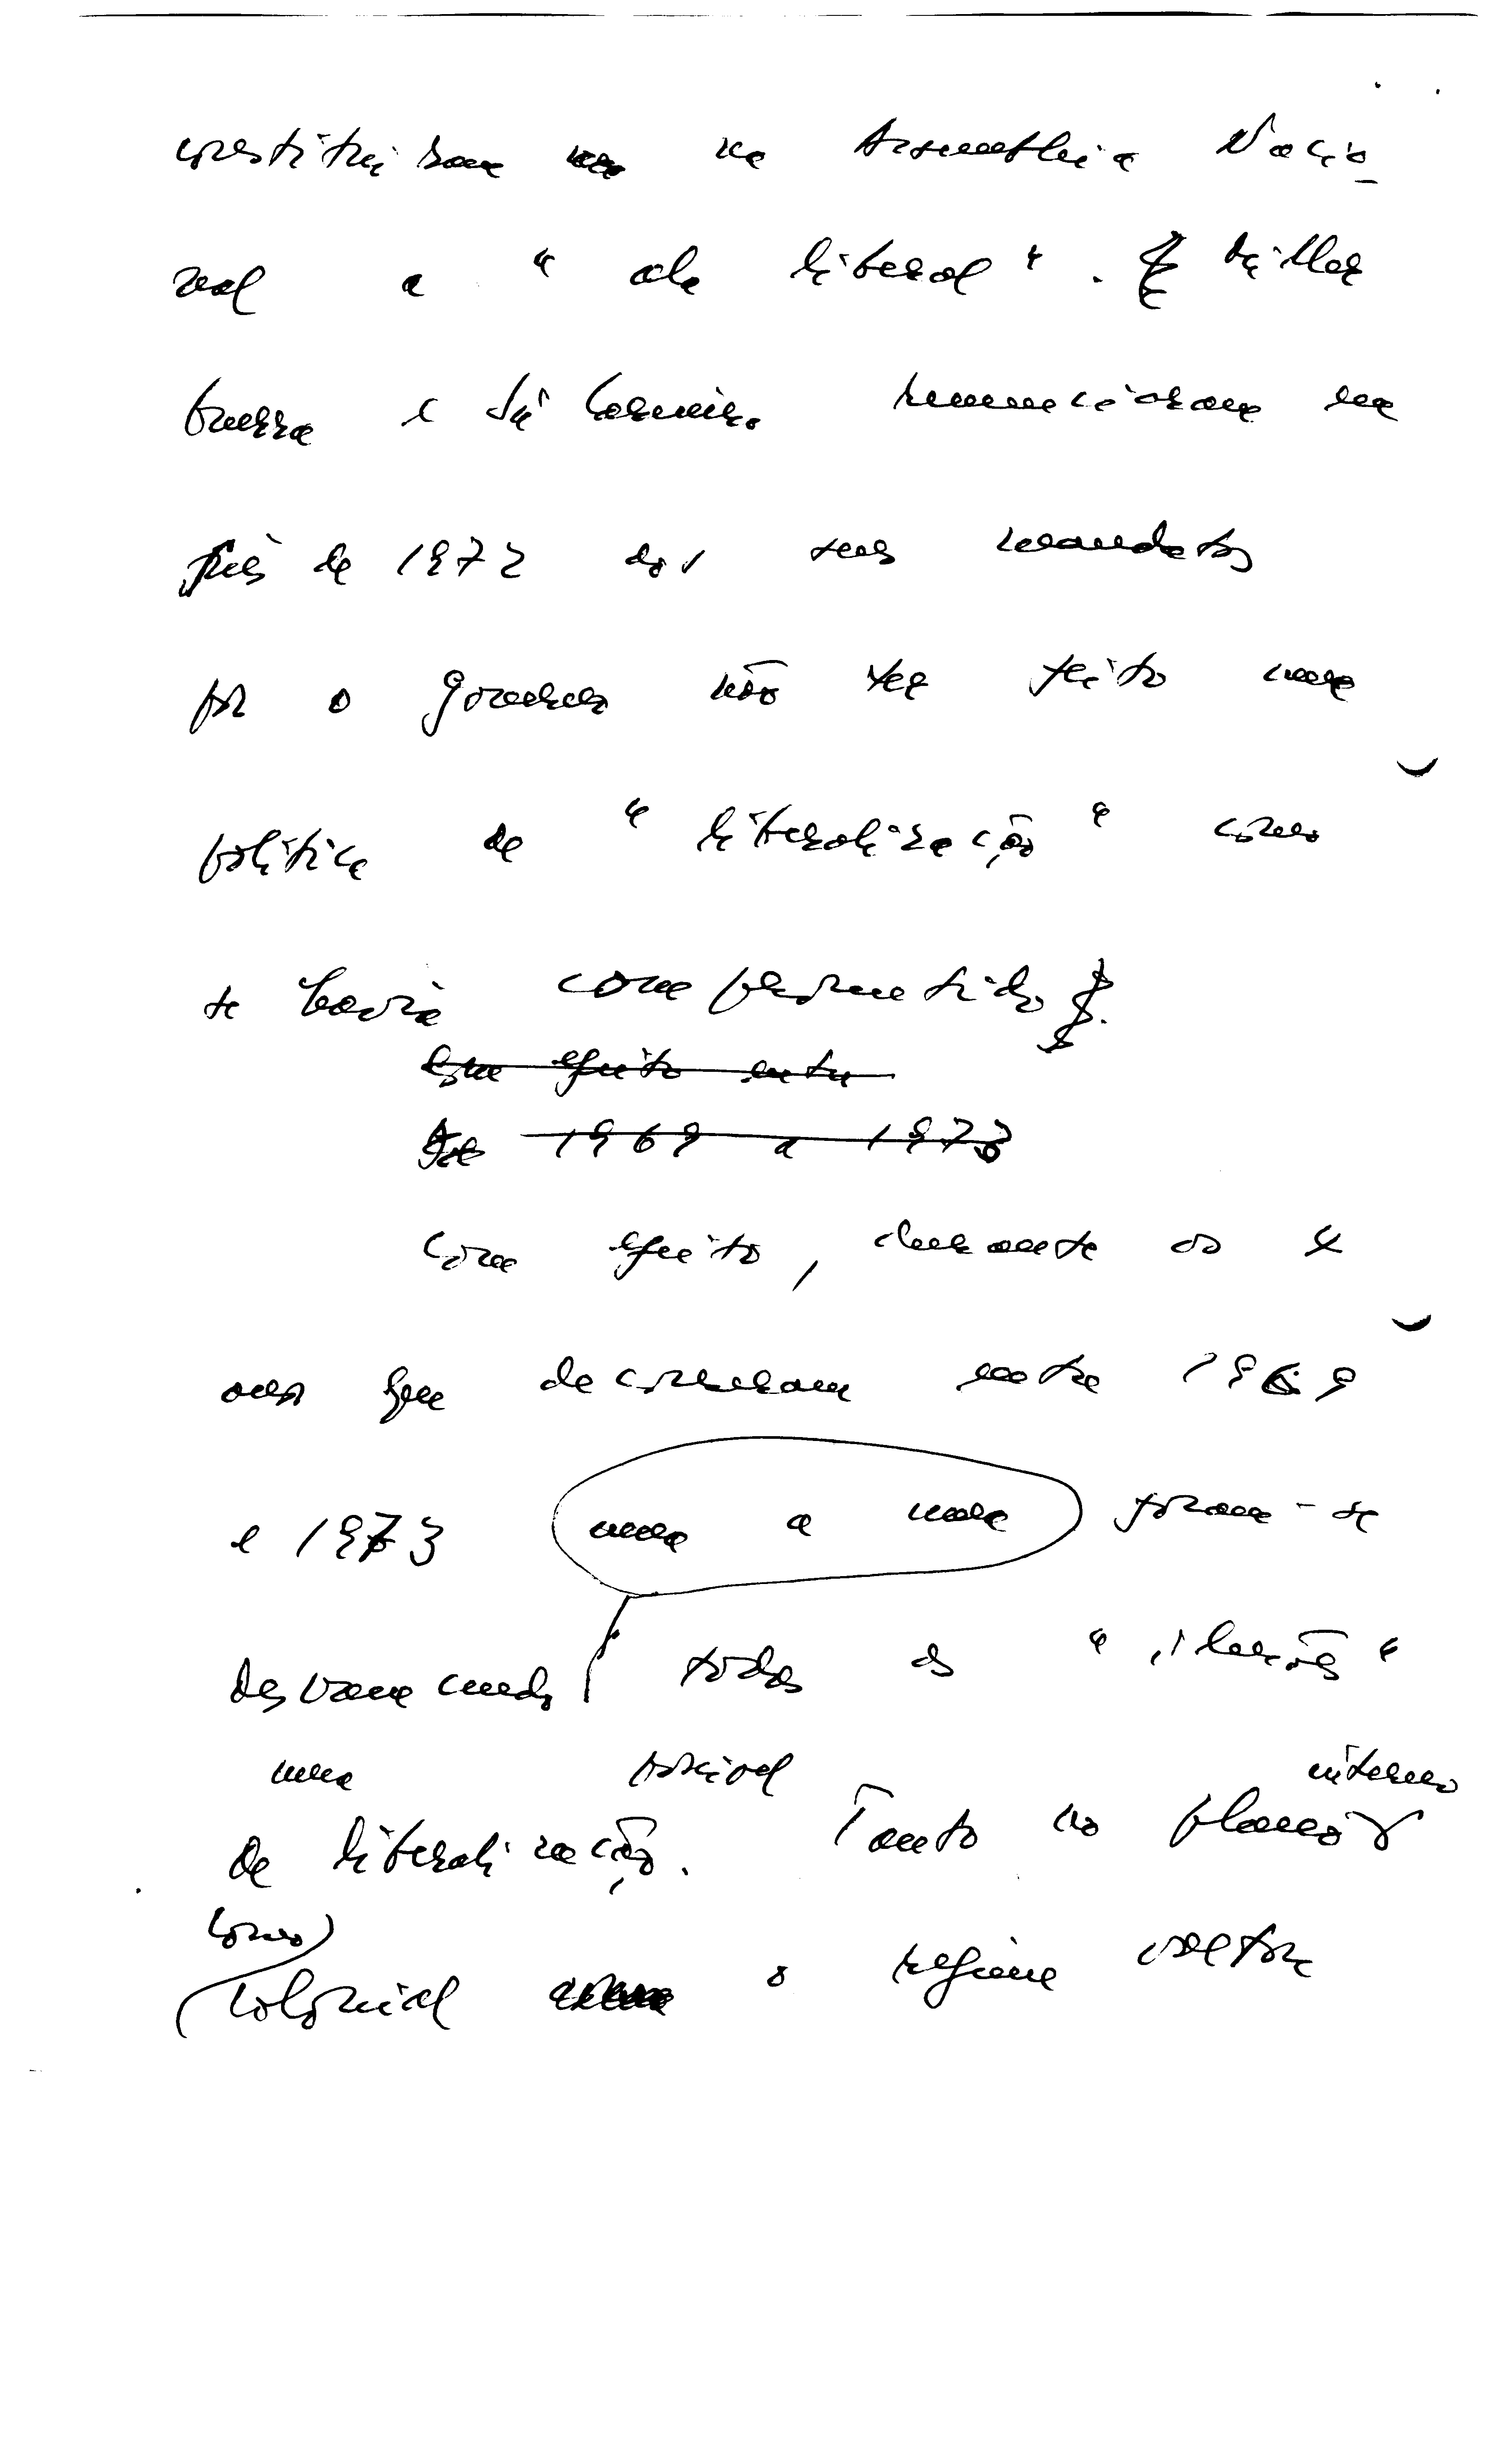 constituiram na Assembleia Nacio
nal a "ala liberal". Miller
Guerra e Sá Carneiro renunciaram em
fins de 1972 aos seus mandatos
por o governo não ter feito uma
política de "liberalização" como
se havia comprometido.
Com efeito entre
De 1969 a 1973
Com efeito, durante os 4
anos que decorreram entre 1969
e 1973 uma a uma foram-se
desvanecendo todas as "ilusões"
uma possível interno
de liberalização. Tanto no plano
como
colonial o regime voltou